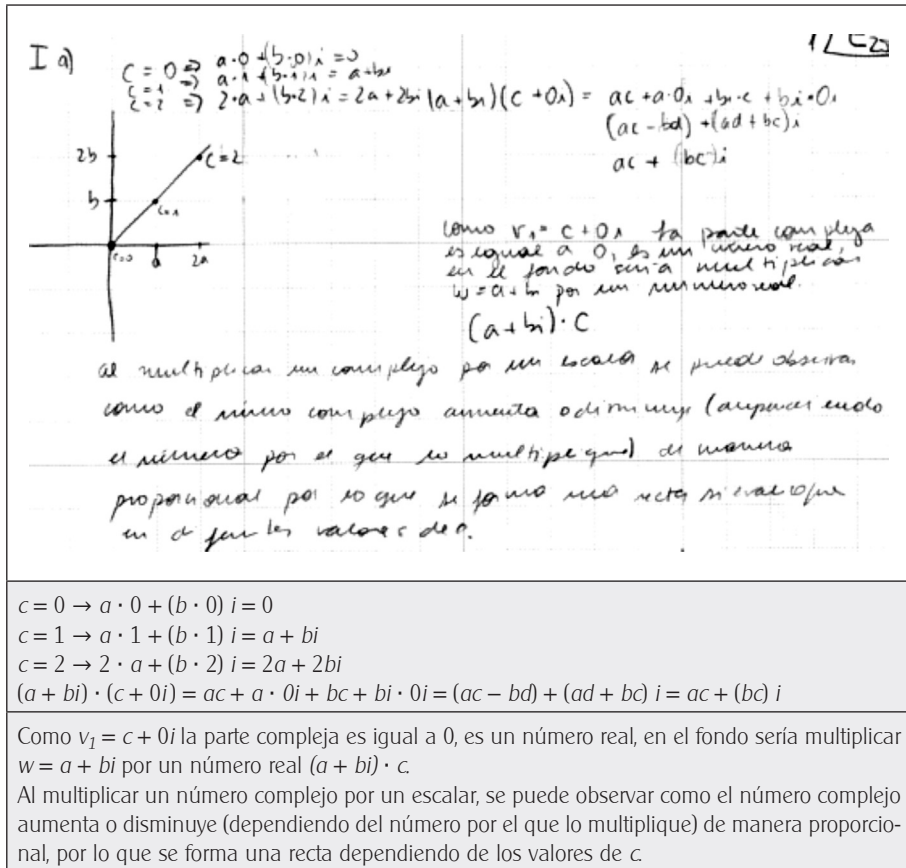 I a)
1/ C25
c = 0 => a·0 + (b·0) i = 0
c = 1 => a·1 + (b·1) i = a+bi
c = 2 => 2·a + (b·2) i = 2a + 2bi
(a + bi) (c + 0i) = ac + a·0i + bi·c + bi·0i
(ac - bd) + (ad + bc) i
ac + (bc) i
2b
c=2
b
c=1
c=0
a
2a
como v₁ = c + 0i la parte compleja
es igual a 0, es un número real,
en el fondo sería multiplicar
w = a + bi por un número real.
(a + bi) · C
al multiplicar un complejo por un escalar se puede observar
como el número complejo aumenta o disminuye (dependiendo
el número por el que lo multiplique) de manera
proporcional por lo que se forma una recta
en valores de c.
c = 0 → a · 0 + (b · 0) i = 0
c = 1 → a · 1 + (b · 1) i = a + bi
c = 2 → 2 · a + (b · 2) i = 2a + 2bi
(a + bi) · (c + 0i) = ac + a · 0i + bc + bi · 0i = (ac – bd) + (ad + bc) i = ac + (bc) i
Como v₁ = c + 0i la parte compleja es igual a 0, es un número real, en el fondo sería multiplicar
w = a + bi por un número real (a + bi) · c.
Al multiplicar un número complejo por un escalar, se puede observar como el número complejo
aumenta o disminuye (dependiendo del número por el que lo multiplique) de manera proporcio-
nal, por lo que se forma una recta dependiendo de los valores de c.